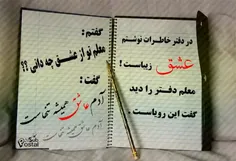 در دفتر خاطرات نوشتم
عشق
زیباست !
معلم دفتر را دید
گفت این رویاست .
گفتم :
معلم تو از عشق چه دانی ؟؟
گفت :
آدم عاشق همیشه تنهاست
آدم عاشق همیشه تنهاست